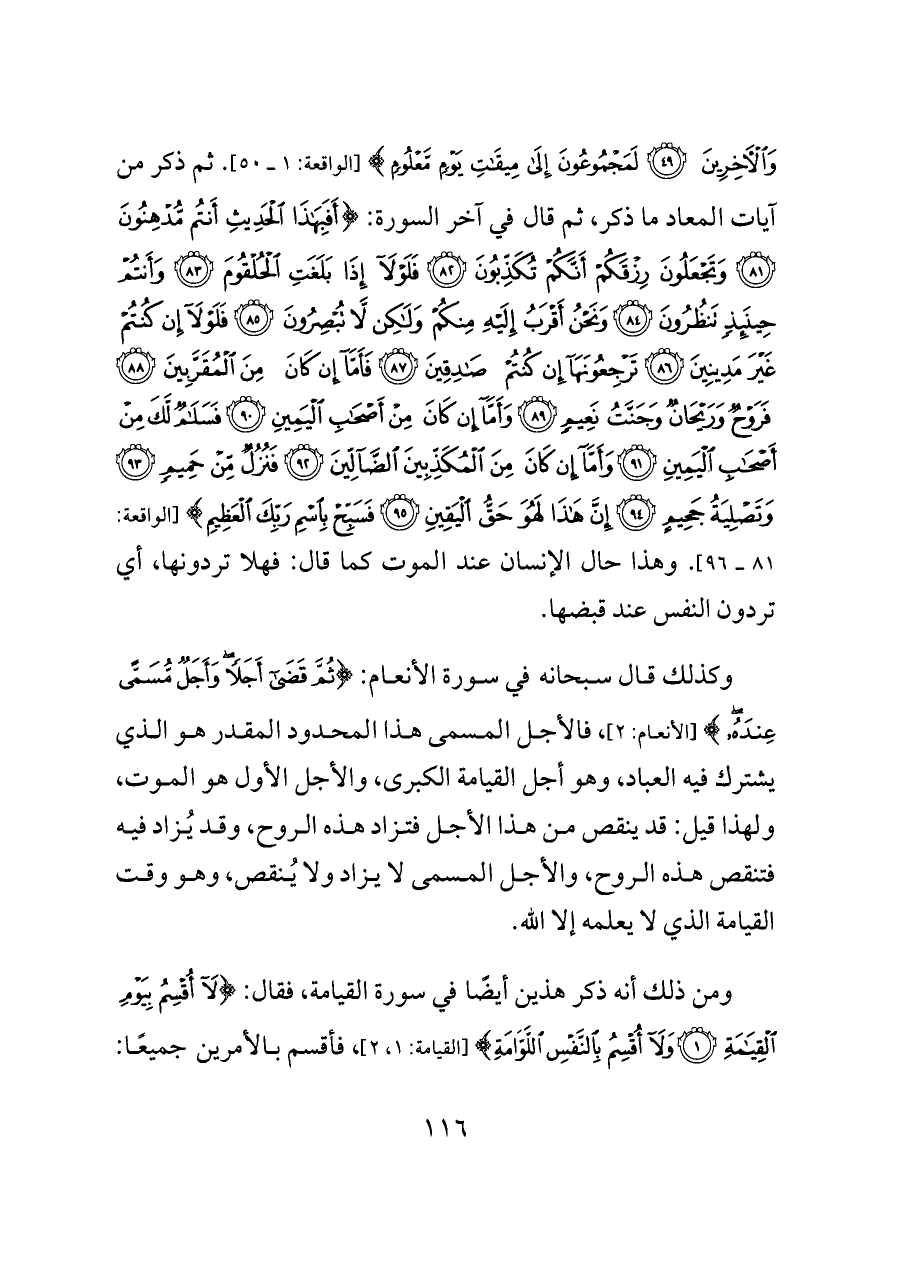 وَٱلْأَخِرِينَ ﴿٤٩﴾ لَمَجْمُوعُونَ إِلَىٰ مِيقَٰتِ يَوْمٍ مَّعْلُومٍ ﴾ [الواقعة: ١ ـ ٥٠]. ثم ذكر من
آيات المعاد ما ذكر، ثم قال في آخر السورة: ﴿ أَفَبِهَٰذَا ٱلْحَدِيثِ أَنتُم مُّدْهِنُونَ
﴿٨١﴾ وَتَجْعَلُونَ رِزْقَكُمْ أَنَّكُمْ تُكَذِّبُونَ ﴿٨٢﴾ فَلَوْلَآ إِذَا بَلَغَتِ ٱلْحُلْقُومَ ﴿٨٣﴾ وَأَنتُمْ
حِينَئِذٍ تَنظُرُونَ ﴿٨٤﴾ وَنَحْنُ أَقْرَبُ إِلَيْهِ مِنكُمْ وَلَٰكِن لَّا تُبْصِرُونَ ﴿٨٥﴾ فَلَوْلَآ إِن كُنتُمْ
غَيْرَ مَدِينِينَ ﴿٨٦﴾ تَرْجِعُونَهَآ إِن كُنتُمْ صَٰدِقِينَ ﴿٨٧﴾ فَأَمَّآ إِن كَانَ مِنَ ٱلْمُقَرَّبِينَ ﴿٨٨﴾
فَرَوْحٌ وَرَيْحَانٌ وَجَنَّتُ نَعِيمٍ ﴿٨٩﴾ وَأَمَّآ إِن كَانَ مِنْ أَصْحَٰبِ ٱلْيَمِينِ ﴿٩٠﴾ فَسَلَٰمٌ لَّكَ مِنْ
أَصْحَٰبِ ٱلْيَمِينِ ﴿٩١﴾ وَأَمَّآ إِن كَانَ مِنَ ٱلْمُكَذِّبِينَ ٱلضَّآلِّينَ ﴿٩٢﴾ فَنُزُلٌ مِّنْ حَمِيمٍ ﴿٩٣﴾
وَتَصْلِيَةُ جَحِيمٍ ﴿٩٤﴾ إِنَّ هَٰذَا لَهُوَ حَقُّ ٱلْيَقِينِ ﴿٩٥﴾ فَسَبِّحْ بِٱسْمِ رَبِّكَ ٱلْعَظِيمِ ﴾ [الواقعة:
٨١ ـ ٩٦]. وهذا حال الإنسان عند الموت كما قال: فهلا تردونها، أي
تردون النفس عند قبضها.
وكذلك قال سبحانه في سورة الأنعام: ﴿ ثُمَّ قَضَىٰٓ أَجَلًاۖ وَأَجَلٌ مُّسَمًّى
عِندَهُۥۖ ﴾ [الأنعام: ٢]، فالأجل المسمى هذا المحدود المقدر هو الذي
يشترك فيه العباد، وهو أجل القيامة الكبرى، والأجل الأول هو الموت،
ولهذا قيل: قد ينقص من هذا الأجل فتزاد هذه الروح، وقد يُزاد فيه
فتنقص هذه الروح، والأجل المسمى لا يزاد ولا يُنقص، وهو وقت
القيامة الذي لا يعلمه إلا الله.
ومن ذلك أنه ذكر هذين أيضًا في سورة القيامة، فقال: ﴿ لَآ أُقْسِمُ بِيَوْمِ
ٱلْقِيَٰمَةِ ﴿١﴾ وَلَآ أُقْسِمُ بِٱلنَّفْسِ ٱللَّوَّامَةِ ﴾ [القيامة: ١، ٢]، فأقسم بالأمرين جميعًا:
١١٦